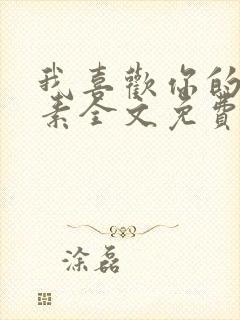 我喜歡你的
素全文免費
涂磊